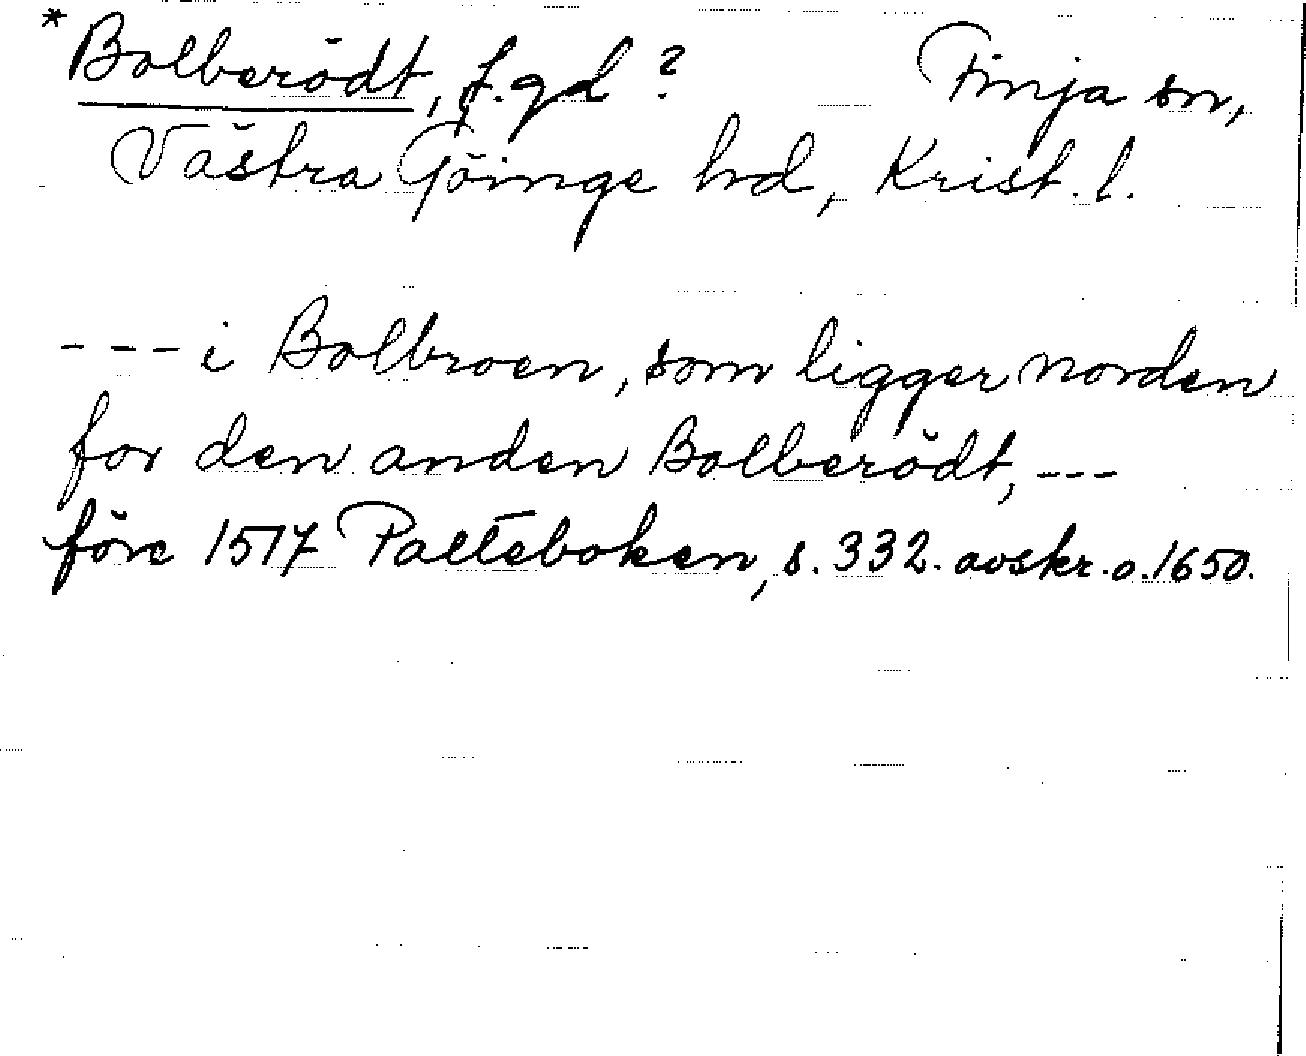 *Bolberödt, f.gd ? Finja sn,
Västra Göinge hd, Krist. l.
--- i Bolbroen, som ligger norden
for den anden Bolberödt, ---
före 1517 Palteboken, s. 332. avskr. o. 1650.